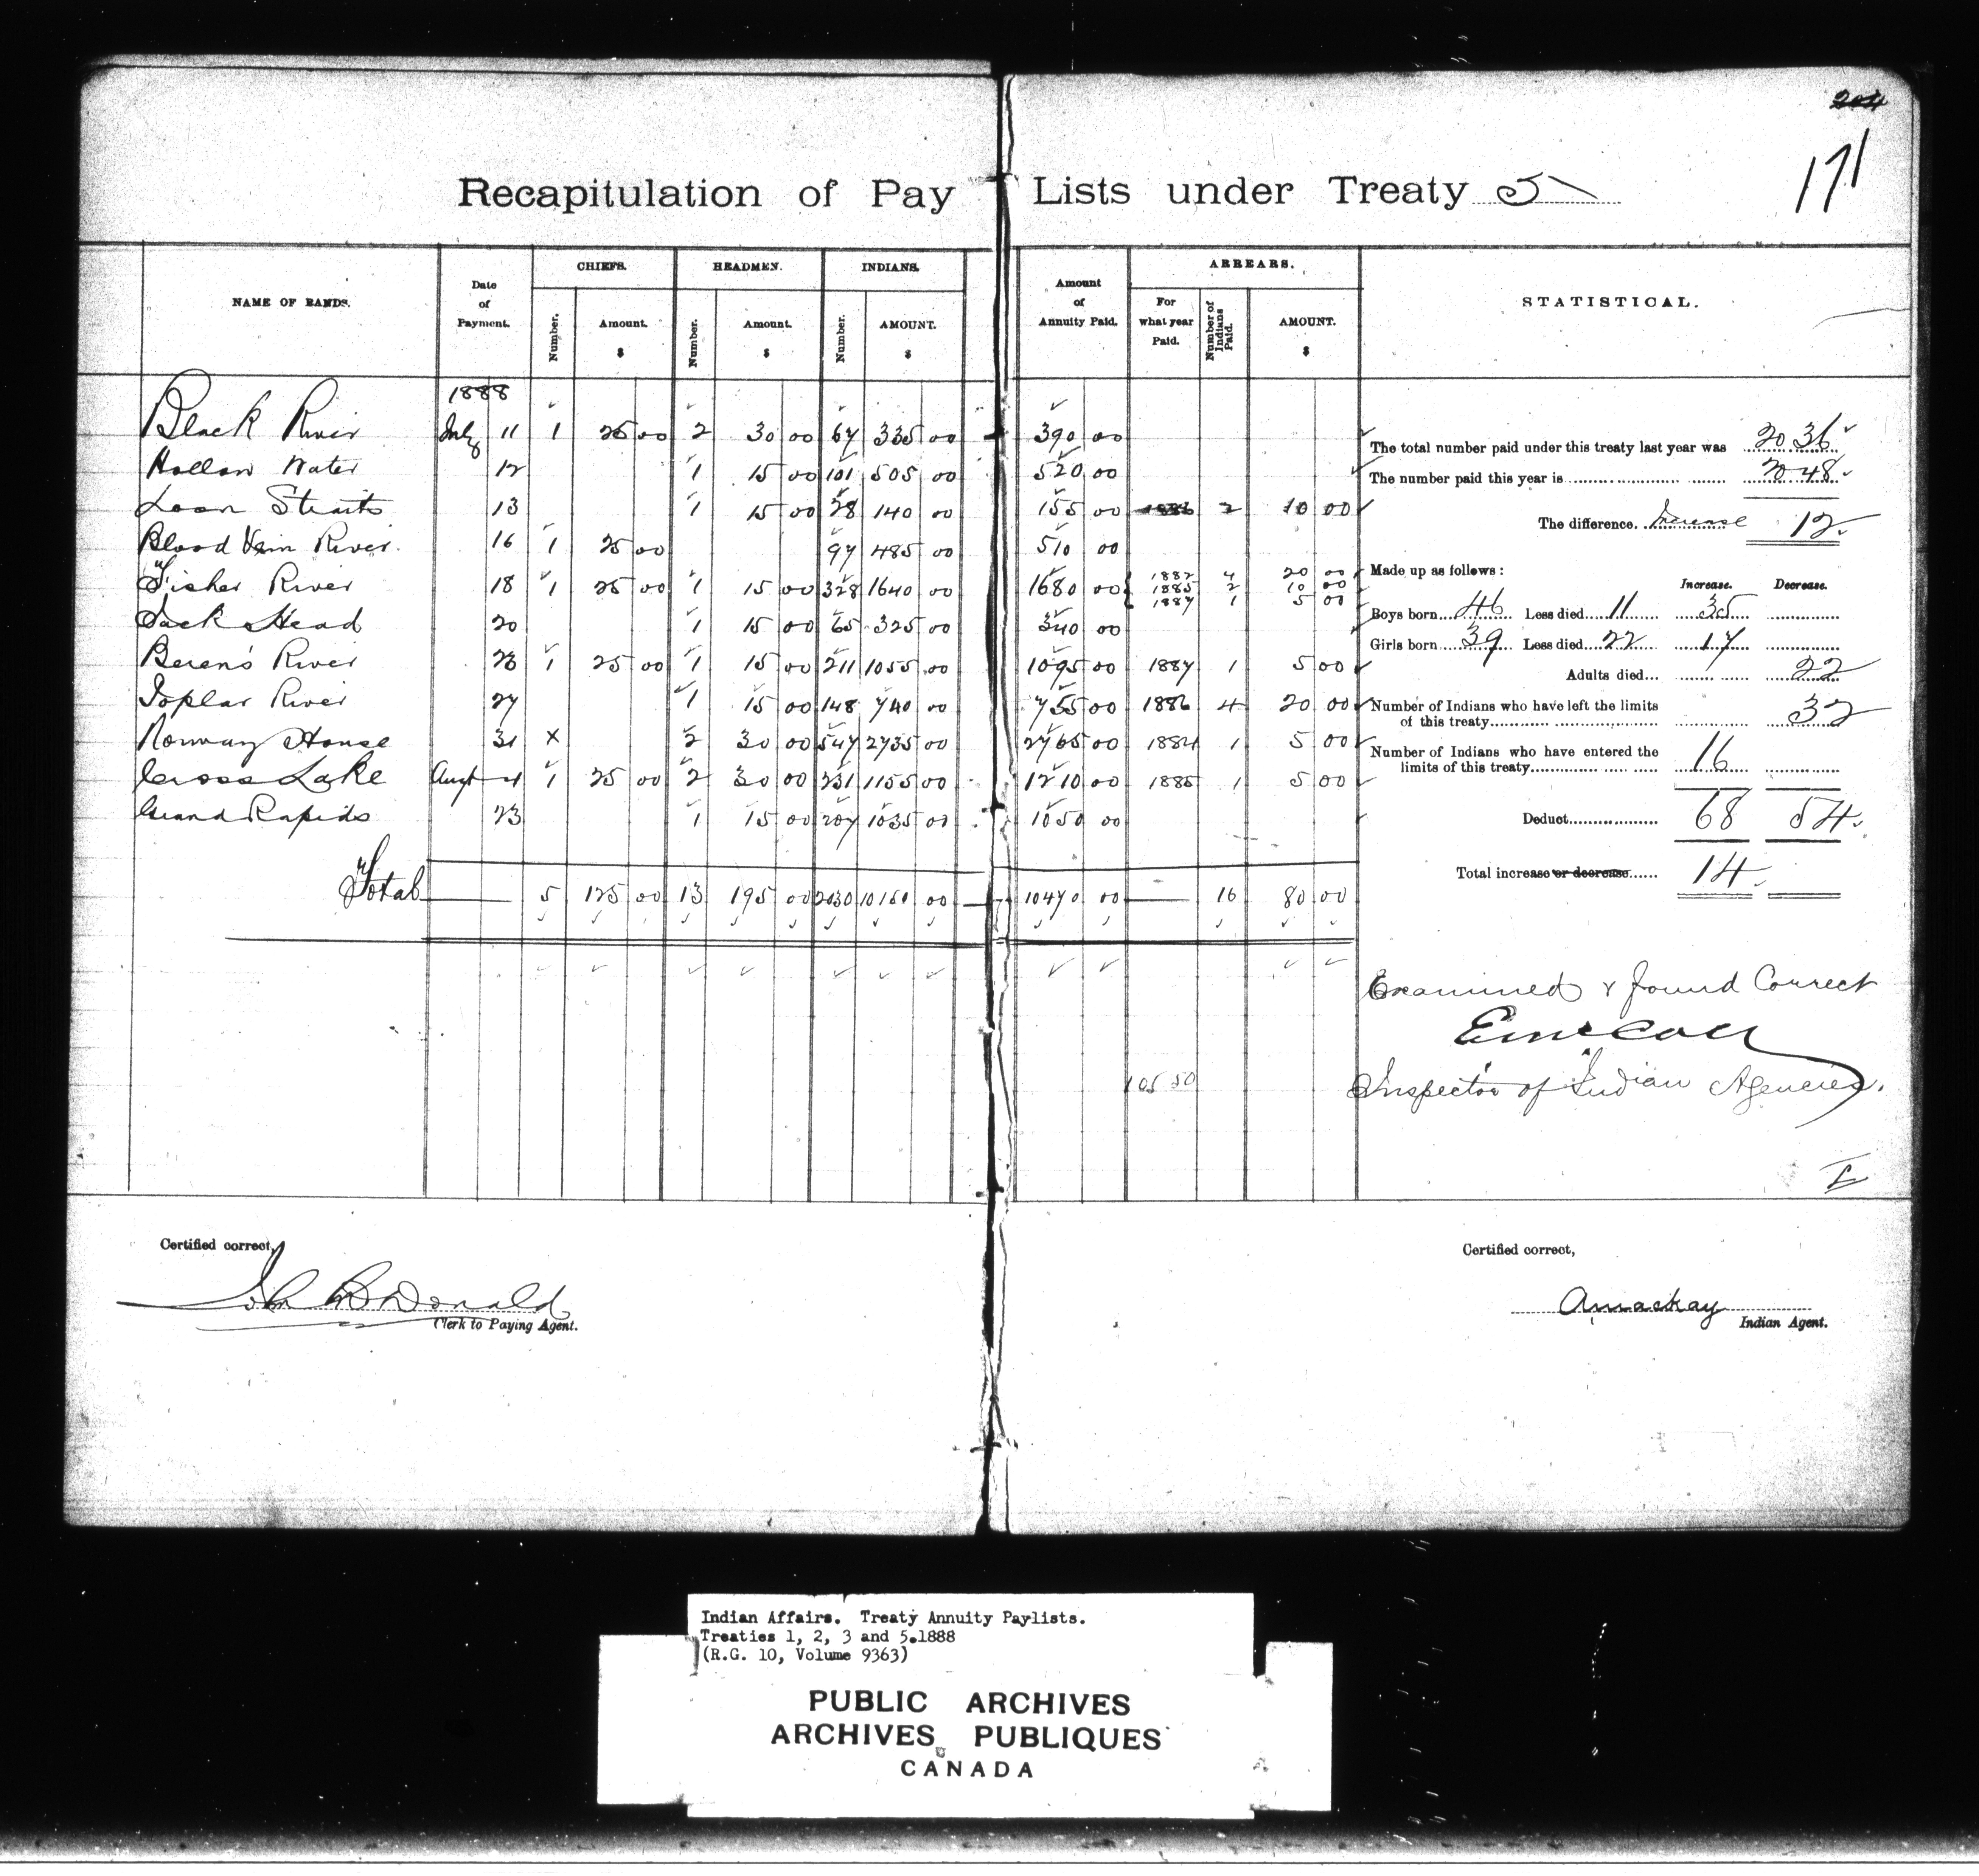 204
171
Recapitulation of Pay Lists under Treaty 5
NAME OF BANDS. Date of Payment. CHIEFS. HEADMEN. INDIANS. Amount of Annuity Paid. ARREARS. STATISTICAL.
Number. Amount. $ Number. Amount. $ Number. AMOUNT. $ For what year Paid. Number of Indians Paid. AMOUNT. $
1888
Black River July 11 1 25 00 2 30 00 67 335 00 390 00
Hollow Water 12 1 15 00 101 505 00 520 00
Loon Straits 13 1 15 00 28 140 00 155 00 1886 2 10 00
Blood Vein River 16 1 25 00 97 485 00 510 00
Fisher River 18 1 25 00 1 15 00 328 1640 00 1680 00 1882 4 20 00
1885 2 10 00
1887 1 5 00
Jack Head 20 1 15 00 65 325 00 340 00
Beren's River 23 1 25 00 1 15 00 211 1055 00 1095 00 1887 1 5 00
Poplar River 27 1 15 00 148 740 00 755 00 1886 4 20 00
Norway House 31 x 2 30 00 547 2735 00 2765 00 1884 1 5 00
Cross Lake Augt 4 1 25 00 2 30 00 231 1155 00 1210 00 1885 1 5 00
Grand Rapids 23 1 15 00 207 1035 00 1050 00
Total 5 125 00 13 195 00 2030 10150 00 10470 00 16 80 00
105 50
The total number paid under this treaty last year was 2036
The number paid this year is 2048
The difference. Increase 12
Made up as follows :
Increase. Decrease.
Boys born 46 Less died 11 35
Girls born 39 Less died 22 17
Adults died... 22
Number of Indians who have left the limits
of this treaty 32
Number of Indians who have entered the
limits of this treaty 16
Deduct 68 54
Total increase or decrease 14
Examined & found Correct
E McColl
Inspector of Indian Agencies.
Certified correct,
John McDonald
Clerk to Paying Agent.
Certified correct,
A Mackay
Indian Agent.
Indian Affairs. Treaty Annuity Paylists.
Treaties 1, 2, 3 and 5.1888
(R.G. 10, Volume 9363)
PUBLIC ARCHIVES
ARCHIVES PUBLIQUES
CANADA